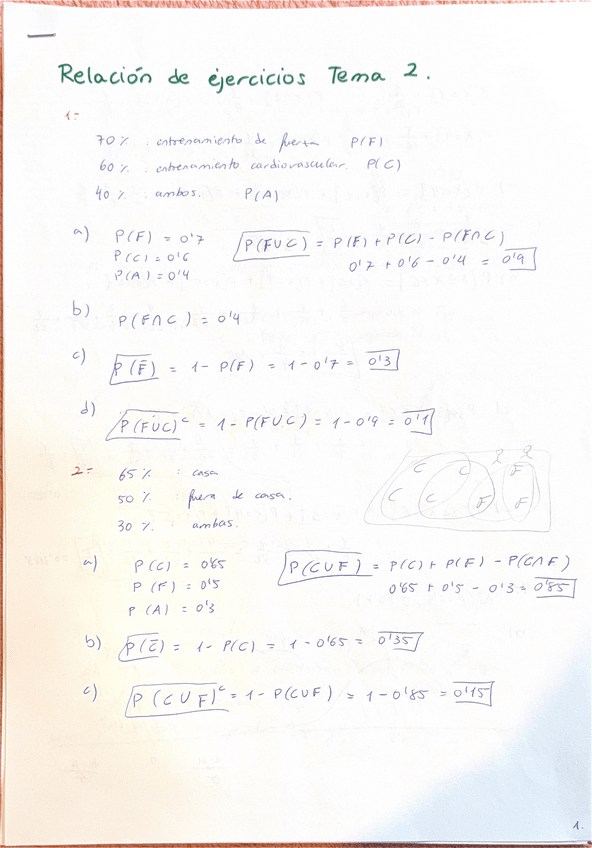 Relación de ejercicios Tema 2.
1=
70% : entrenamiento de fuerza P(F)
60% : entrenamiento cardiovascular. P(C)
40% : ambos. P(A)
a) P(F) = 0'7 P(F∪C) = P(F) + P(C) - P(F∩C)
P(C) = 0'6 0'7 + 0'6 - 0'4 = 0'9
P(A) = 0'4
b) P(F∩C) = 0'4
c) P(F̄) = 1 - P(F) = 1 - 0'7 = 0'3
d) P(F∪C)ᶜ = 1 - P(F∪C) = 1 - 0'9 = 0'1
2= 65% : casa
50% : fuera de casa.
30% : ambas.
C C F
C C F F
a) P(C) = 0'65 P(C∪F) = P(C) + P(F) - P(C∩F)
P(F) = 0'5 0'65 + 0'5 - 0'3 = 0'85
P(A) = 0'3
b) P(C̄) = 1 - P(C) = 1 - 0'65 = 0'35
c) P(C∪F)ᶜ = 1 - P(C∪F) = 1 - 0'85 = 0'15
1.